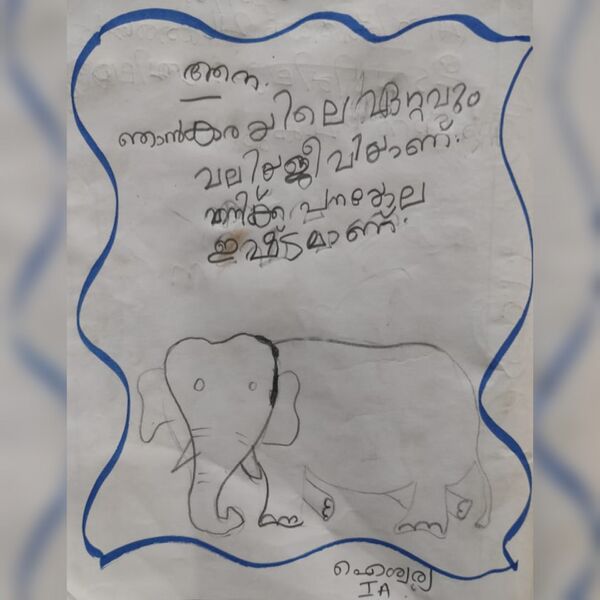 ആന.
ഞാൻ കരയിലെ ഏറ്റവും
വലിയ ജീവിയാണ്.
എനിക്ക് പനയോല
ഇഷ്ടമാണ്.
ഐശ്വര്യ
I A